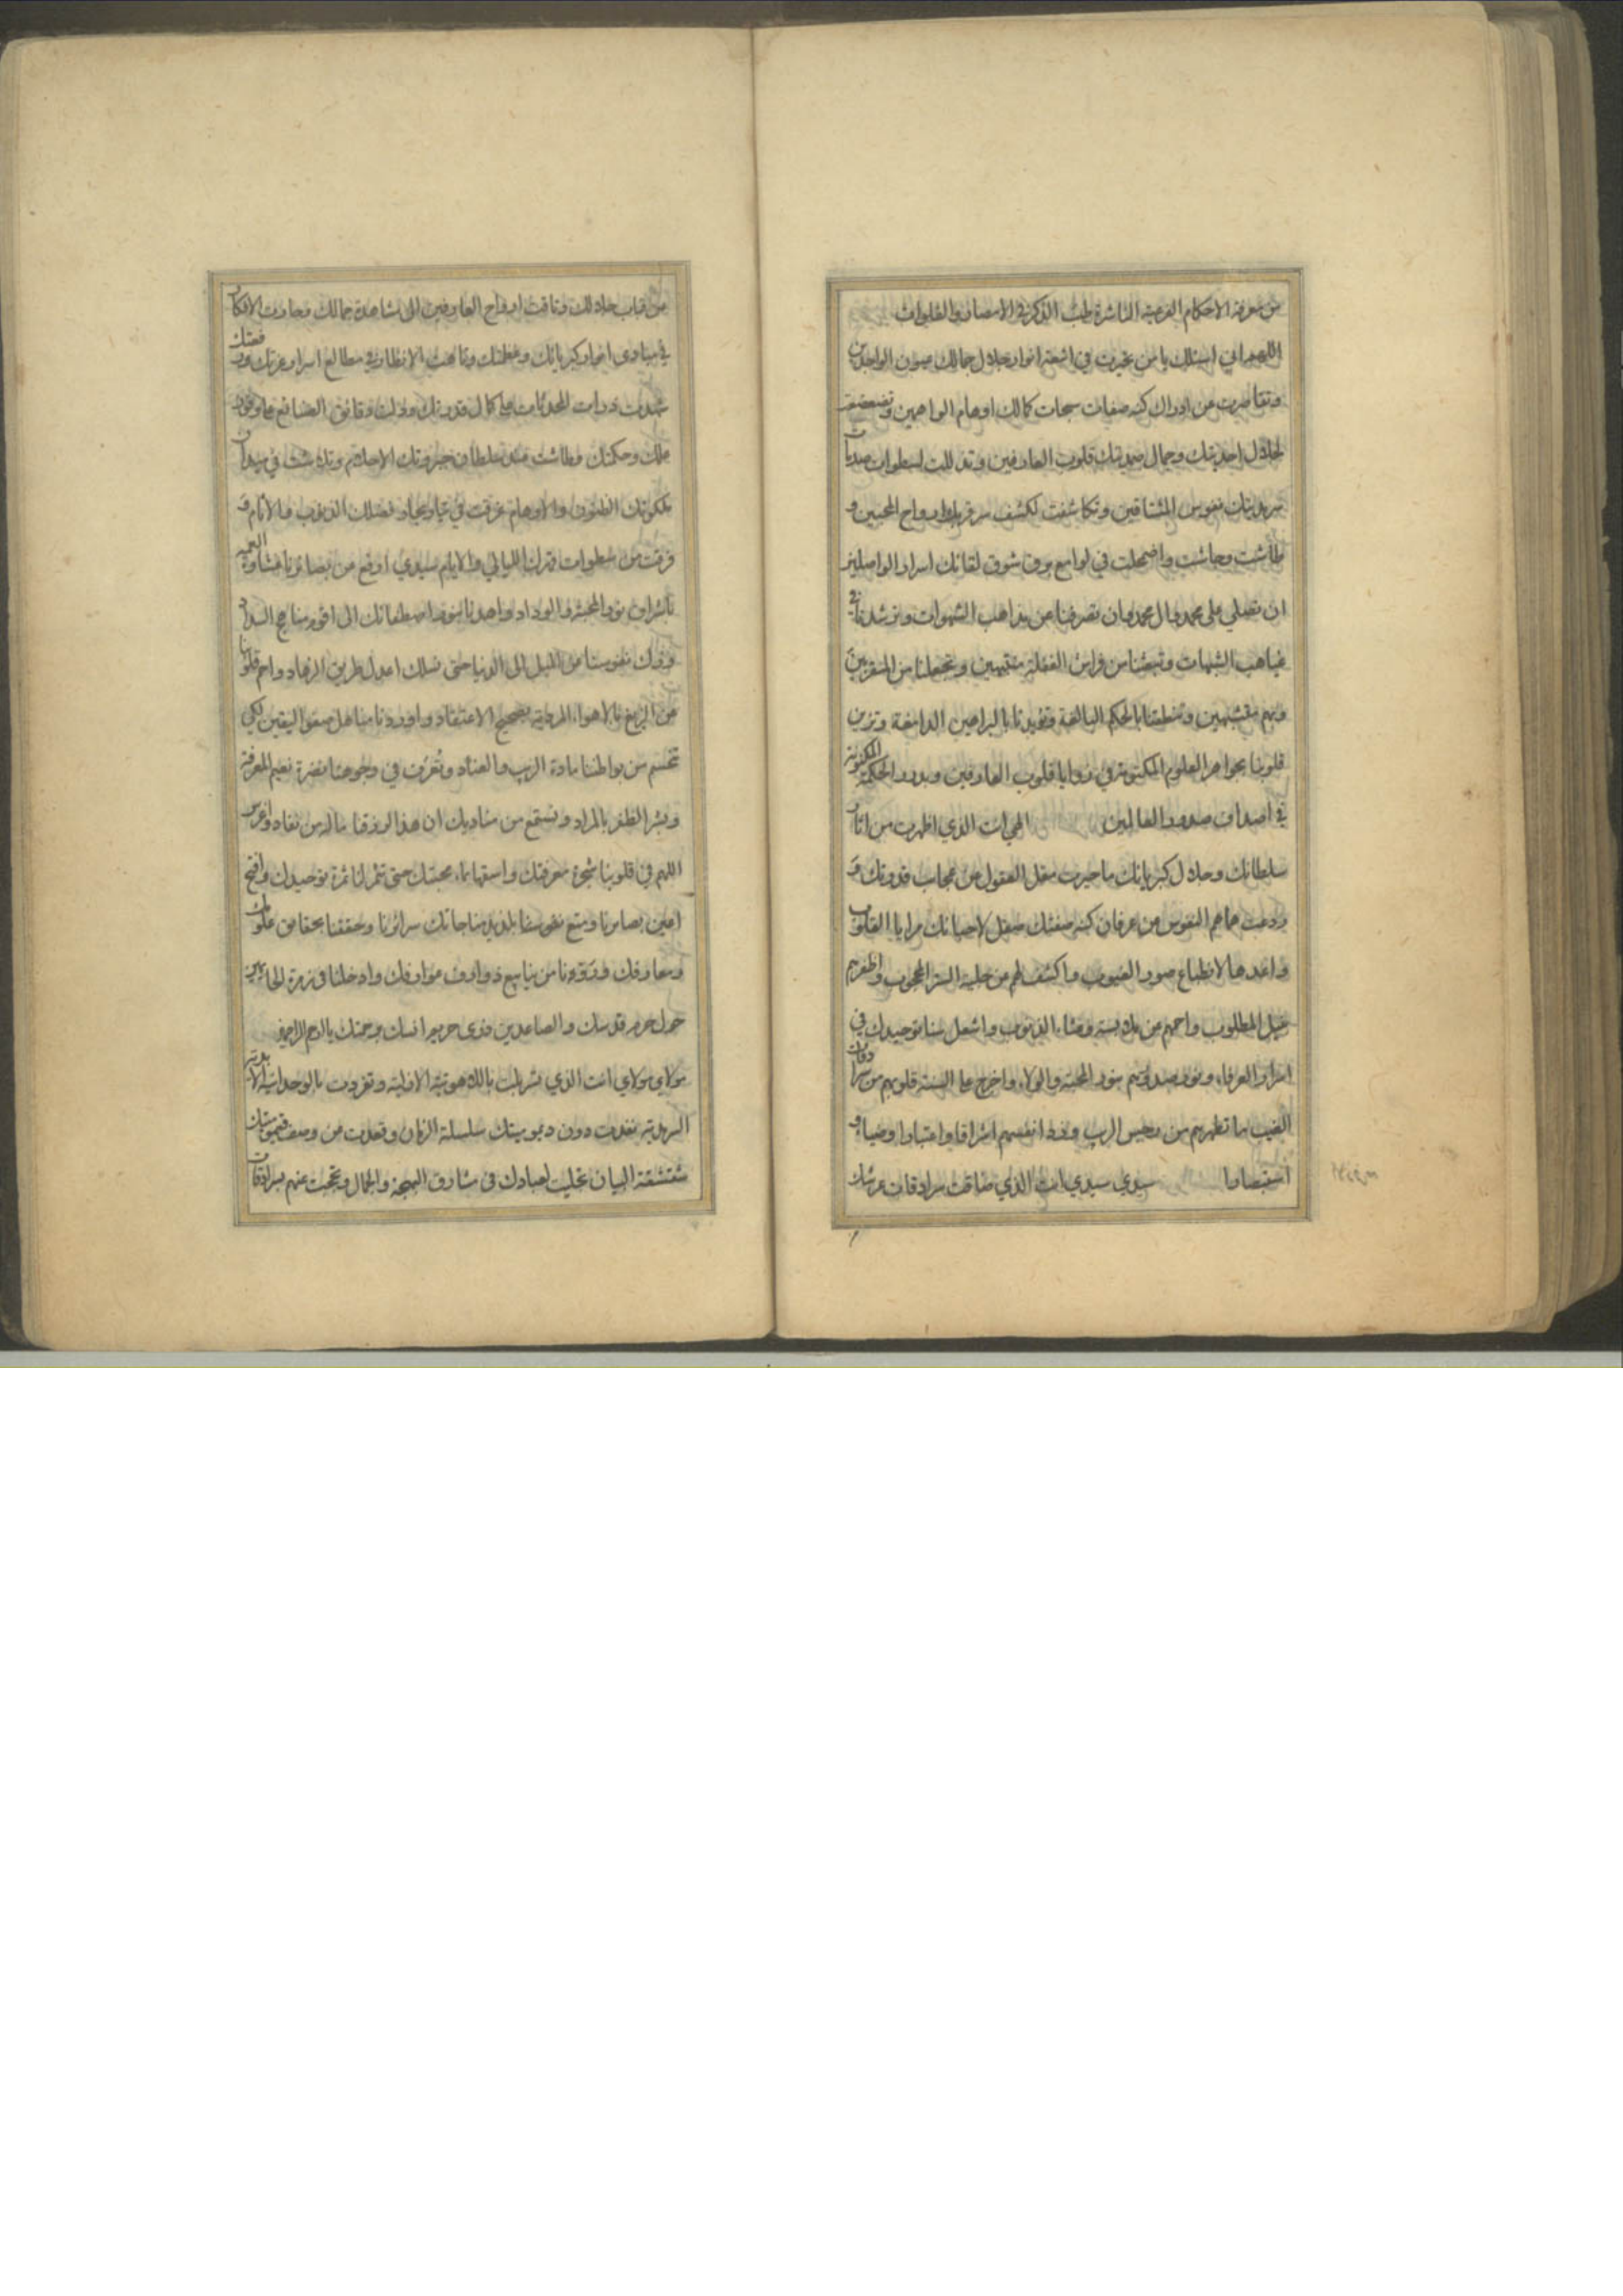 من معرفة الاحكام الفرعية الناشرة طيب الذكر في الامصار والفلوات
اللهم اني اسئلك يا من تحيرت في اشعة انوار جلال جمالك عيون الواجدين
وتقاصرت عن ادراك كنه صفات سبحات كمالك اوهام الواهمين وتضعضعت
لجلال احديتك وجمال صمديتك قلوب العارفين وتذللت لسطوات ميدان
سرمديتك نفوس المشتاقين وتكاشفت لكشف سر قربك ارواح المحبين و
طاشت وجاشت واضمحلت في لوامع بوق شوق لقائك اسرار الواصلين
ان تصلي على محمد وال محمد وان تصرفنا عن مذاهب الشهوات وترشدنا في
غياهب الشبهات وتبعثنا من فراش الغفلة منتبهين وتجعلنا من المقربين
وبهم متشبهين وتنطقنا بالحكم البالغة وتؤيدنا بالبراهين الدامغة وتزين
قلوبنا بجواهر العلوم المكنونة في زوايا قلوب العارفين وبدرر الحكمة المكنونة
في اصداف صدور العالمين الهي انت الذي اظهرت من اثار
سلطانك وجلال كبريائك ما حيرت مقل العقول من عجائب قدرتك و
ردعت هماهم النفوس عن عرفان كنه صفتك صقل لاحبائك مرايا القلوب
واعدها لانطباع صور الغيوب واكشف لهم عن جلية السر المحجوب واظفرهم
بنيل المطلوب واحمهم عن ملابسة ومشاء الذنوب واشعل سنا توحيدك في
اسرار العرفاء ونور صدورهم بنور المحبة والولاء واخرج على السنة قلوبهم من سرادقات
الغيب ما تطهرهم من رجس الريب وزد انفسهم اشراقا واعتبارا وضياء و
استبصارا سيدي سيدي انت الذي ضاقت سرادقات عرشك
من قباب جلالك وتاقت ارواح العارفين الى مشاهدة جمالك وحارت الافكار
في مبادى انوار كبريائك وعظمتك وتاهت الانظار في مطالع اسرار عزتك ورفعتك
شهدت ذرات المحدثات على كمال قدرتك ودلت دقائق الصنائع على وفور
علمك وحكمتك وطاشت عند سلطان جبروتك الاحلام وتلاشت في ميدان
ملكوتك الظنون والاوهام غرقت في تيار بحار فضلك الذنوب والاثام و
فرقت من سطوات قدرك الليالي والايام سيدي ارفع عن بصائرنا غشاوة العمه
باشراق نور المحبة والوداد واهدنا بنور اصطفائك الى اقوم مناهج السداد
وزك نفوسنا عن الميل الى الدنيا حتى نسلك اعدل طريق الزهاد واحم قلوبنا
عن الزيغ بالاهواء المردية بصحيح الاعتقاد واوردنا مناهل صفو اليقين لكي
تحسم من بواطننا مادة الريب والعناد وتعرف في وجوهنا نضرة نعيم المعرفة
وبشر الظفر بالمراد ونستمع من مناديك ان هذا لرزقنا ما له من نفاد واغرس
اللهم في قلوبنا شجرة معرفتك واسقها بماء محبتك حتى تثمر لنا ثمرة توحيدك وافتح
اعين بصائرنا ومتع نفوسنا بلذيذ مناجاتك سرائرنا وحققنا بحقائق علومك
ومعارفك وزودنا من ينابيع ذوارف عوارفك وادخلنا في زمرة الحائمين
حول حرم قدسك والصاعدين ذرى حريم انسك برحمتك يا ارحم الراحمين
مولاي مولاي انت الذي تسربلت باللاهوتية الازلية وتفردت بالوحدانية الابدية
السرمدية نفدت دون ديموميتك سلسلة الزمان وتعلت من وصف قيوميتك
شقشقة البيان تجليت لعبادك في مشارق البهجة والجمال وتحجبت عنهم بسرادقات